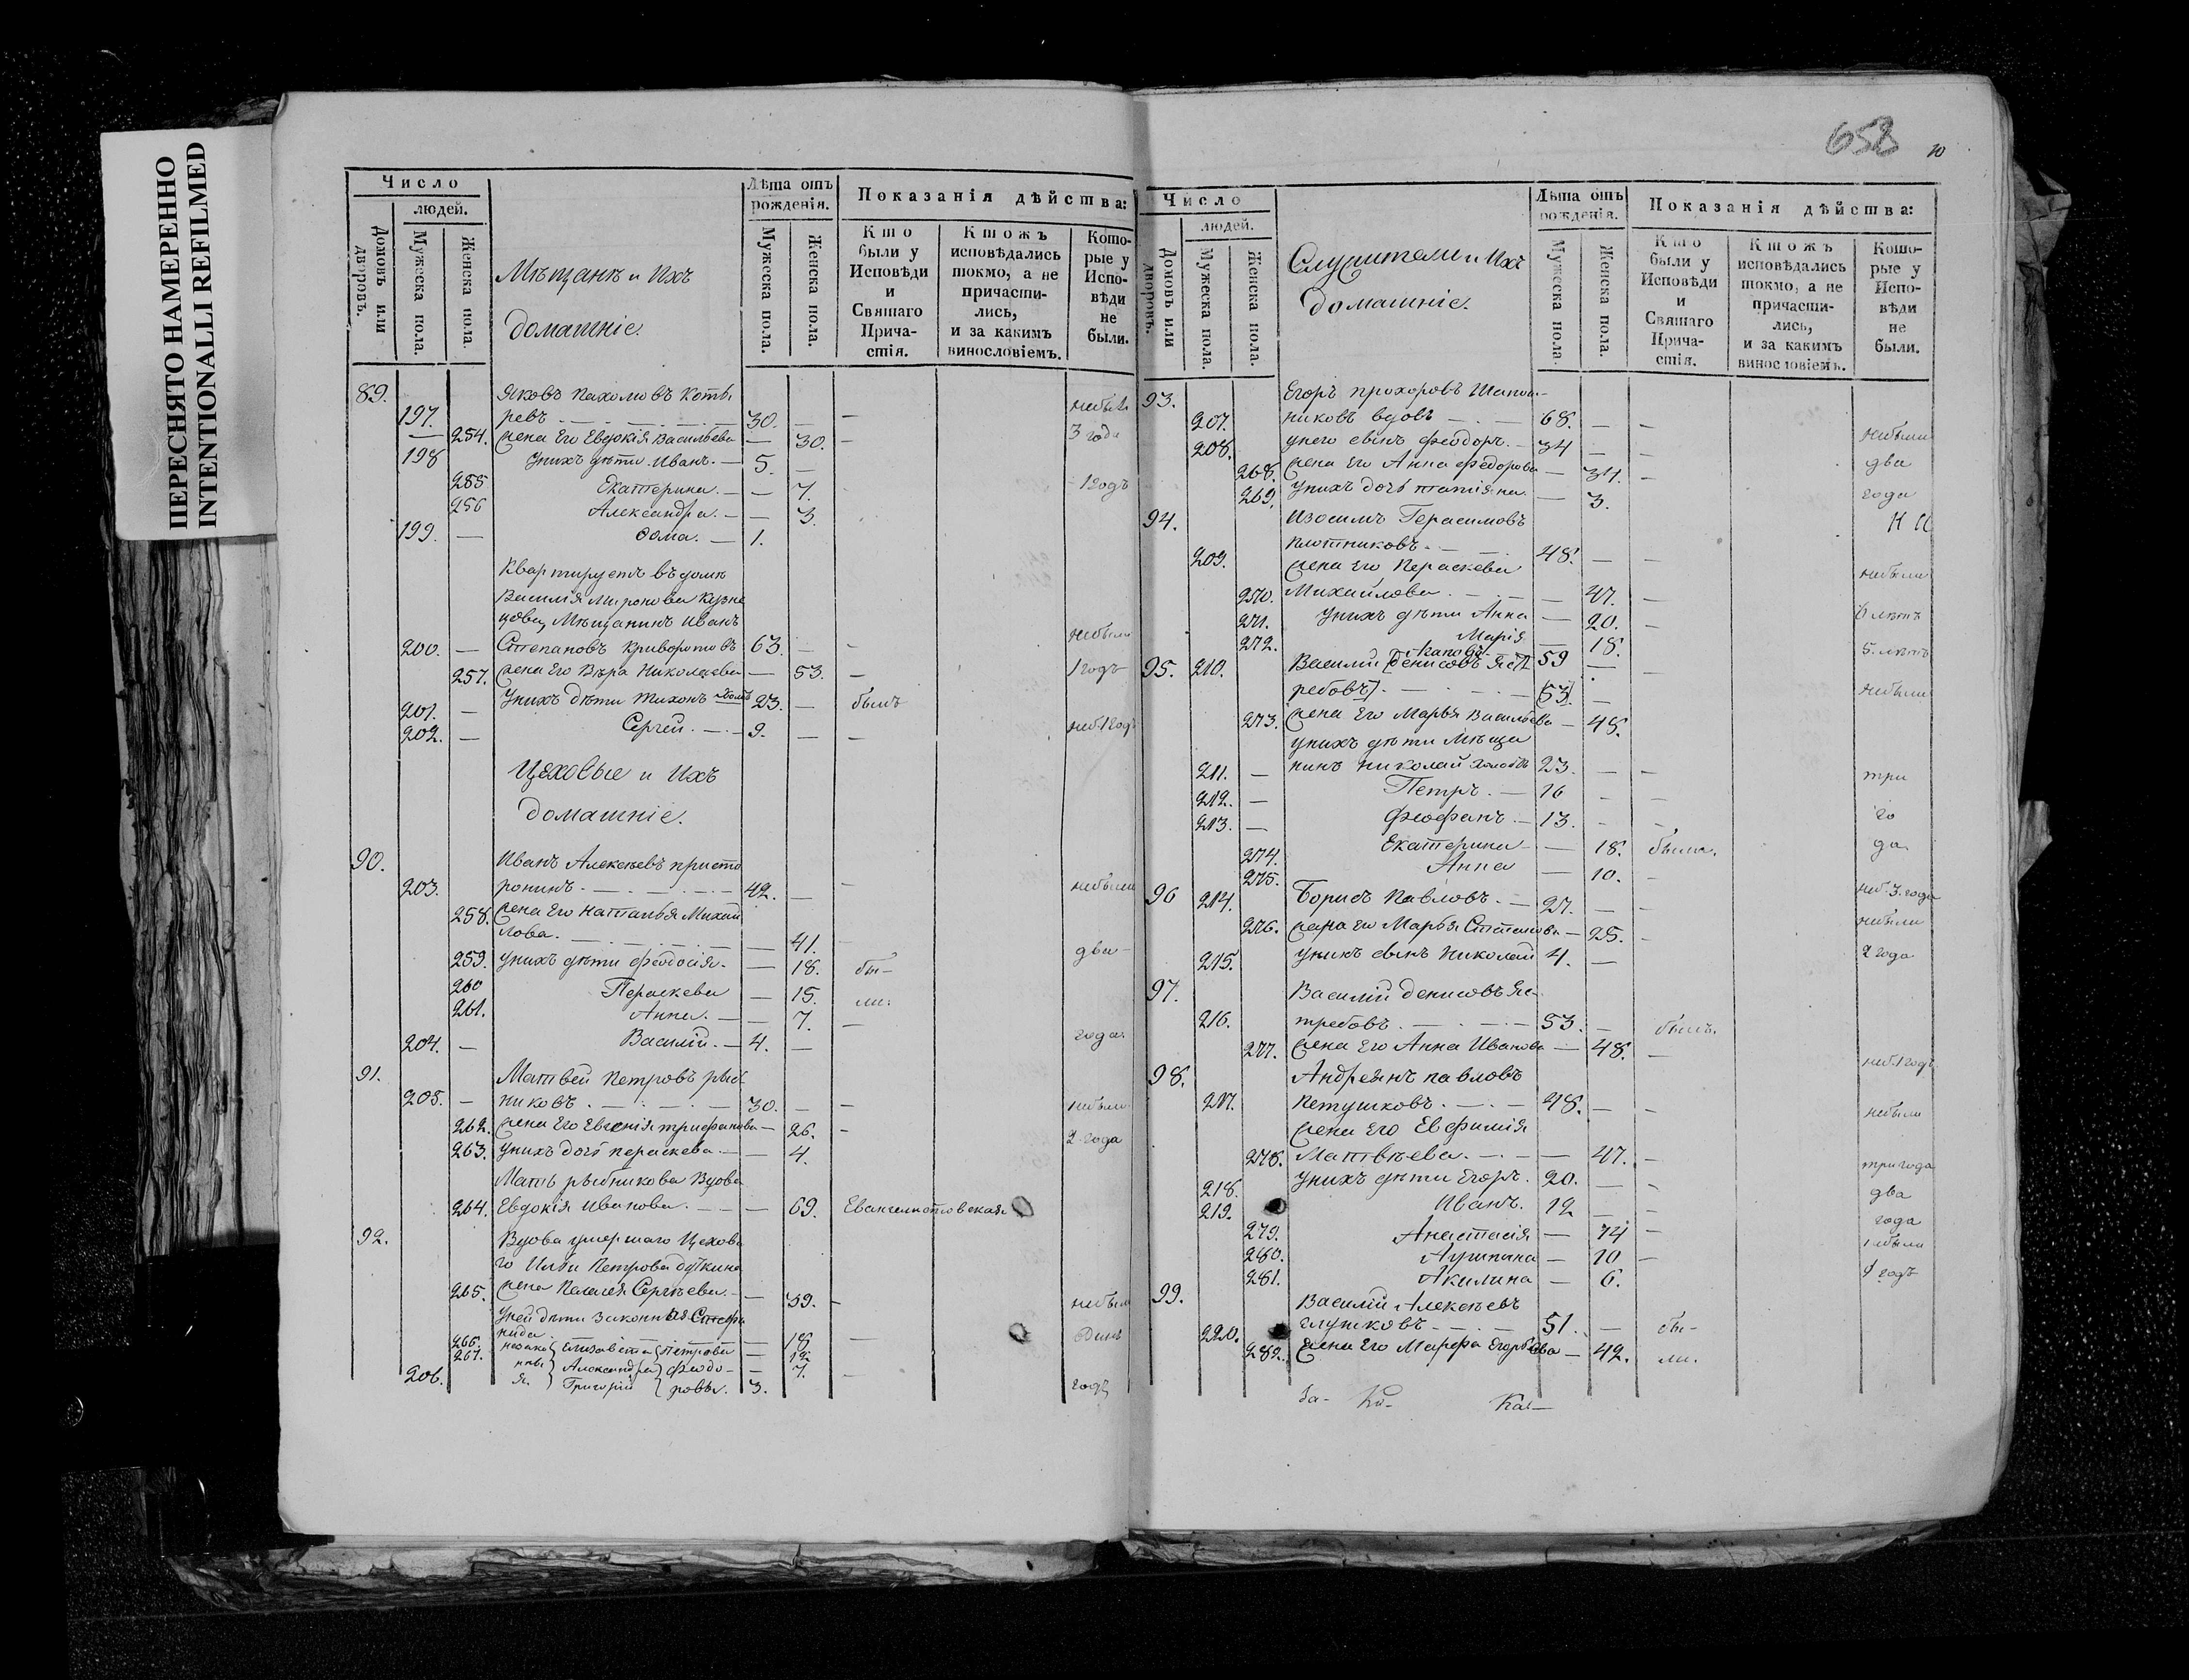 ПЕРЕСНЯТО НАМЕРЕННО
INTENTIONALLI REFILMED
Число
людей.
Домовъ или дворовъ.
Мужеска пола.
Женска пола.
Мѣщанѣ и Ихъ
домашніе.
Лѣта отъ рожденія.
Мужеска пола.
Женска пола.
Показанія дѣйства:
Кто были у Исповѣди и Святаго Прича-стія.
Ктожъ исповѣдались токмо, а не причасти-лись, и за какимъ винословіемъ.
Кото-рые у Испо-вѣди не были.
89. Яковъ Пахомовъ
197. ревъ 30. — небыли
— 254. жена Его Евдокія Васильева — 30. — 3 года
198 унихъ дѣти Иванъ. — 5. —
255 Екатерина. — — 7. 1 годъ
256 Александра. — — 3.
199. — Ѳома. — 1.
Квартируетъ въ домѣ
Василія Миронова Кузне
цова, Мѣщанинъ Иванъ
200. — Степановъ Криворотовъ 63. — — небыли
257. жена Его Вѣра Николаева — 53. — 1 годъ
201. — Унихъ дѣти Тихонъ 23. — былъ
202. — Сергей. — 9. — — неб. 1 годъ
Цеховые и Ихъ
домашніе.
90. Иванъ Алексѣевъ присто
203. ронинъ. 42. — — небыли
258. жена Его Наталья Михай
лова. — 41.
259. унихъ дѣти Феодосія. — 18. бы- два
260 Параскева — 15. ли.
261. Анна. — — 7. —
204. — Василій. — 4. — года.
91. Матвей Петровъ рыб
205. — никовъ. 30. — — небыли
262. жена Его Евгенія трифанова — 26. — 2 года
263. унихъ дочь параскева. — — 4.
Мать рыбникова Вдова
264. Евдокія Иванова. — 69. Евангелистовская
92. Вдова умершаго Цехова
го Ильи Петрова дуткина
265. жена Пелагея Сергѣева. — 39. — небыли
Уней дѣти законныя Стефа
нида — 18 — Одинъ
266. незако Елизавета Петрова — 12
267. нны Александра Феодо- — 7. —
206. я. Григорій ровы. 3. годъ
658
10
Число
людей.
Домовъ или дворовъ.
Мужеска пола.
Женска пола.
Служители и Ихъ
домашніе.
Лѣта отъ рожденія.
Мужеска пола.
Женска пола.
Показанія дѣйства:
Кто были у Исповѣди и Святаго Прича-стія.
Ктожъ исповѣдались токмо, а не причасти-лись, и за какимъ винословіемъ.
Кото-рые у Испо-вѣди не были.
93. Егоръ прохоровъ Шапош-
207. никовъ вдовъ — 68. — —
208. унего сынъ Феодоръ. — 34 — — небыли
268. жена Его Анна Федорова — 34. — два
269. унихъ дочь татіяна. — 3. года
94. Изосимъ Герасимовъ
209. плотниковъ. 48. — —
жена Его Параскева небыли
270. Михайлова. — 47. —
271. унихъ дѣти Анна — 20. — 6 лѣтъ
272. Марія — 18. 5. лѣтъ
95. 210. Василій [Денисовъ Яст 59 —
ребовъ]. [53]. — небыли
273. жена Его Марья Васильева — 48.
унихъ дѣти Мѣща
211. — нинъ Николай 23. — — три
212. — Петръ. — 16 — —
213. — Феофанъ. — 13. — — го
274. Екатерина — 18. была. да
275. Анна — 10. —
96 214. Борисъ Павловъ. — 27. — — неб. 3. года
276. жена Его Марья Степанова — 25. — небыли
215. унихъ сынъ Николай 4. — 2 года
97. Василій денисовъ Яс-
216. требовъ. 53. — былъ.
277. жена Его Анна Иванова — 48. — неб. 1 годъ
98. Андреянъ павловъ
217. Петушковъ. 48. — — небыли
жена Его Евфимія
278. Матвѣева. — 47. — три года
218. унихъ дѣти Егоръ. 20. — — два
219. Иванъ. 12 — — года
279. Анастасія — 14 — небыли
280. Агрипина — 10 —
281. Акилина — 6. 1 годъ
99. Василій Алексѣевъ
220. глушковъ. 51. — бы-
282. жена Его Марфа Егорьева — 42. ли.